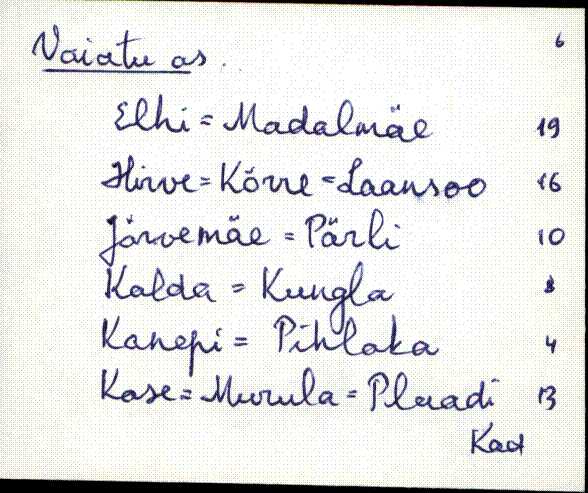 6
Vaiatu as.
Elhi = Madalmäe 19
Hirve = Kõrre = Laansoo 16
Järvemäe = Pärli 10
Kalda = Kungla 8
Kanepi = Pihlaka 4
Kase = Murula = Plaadi 13
Kad